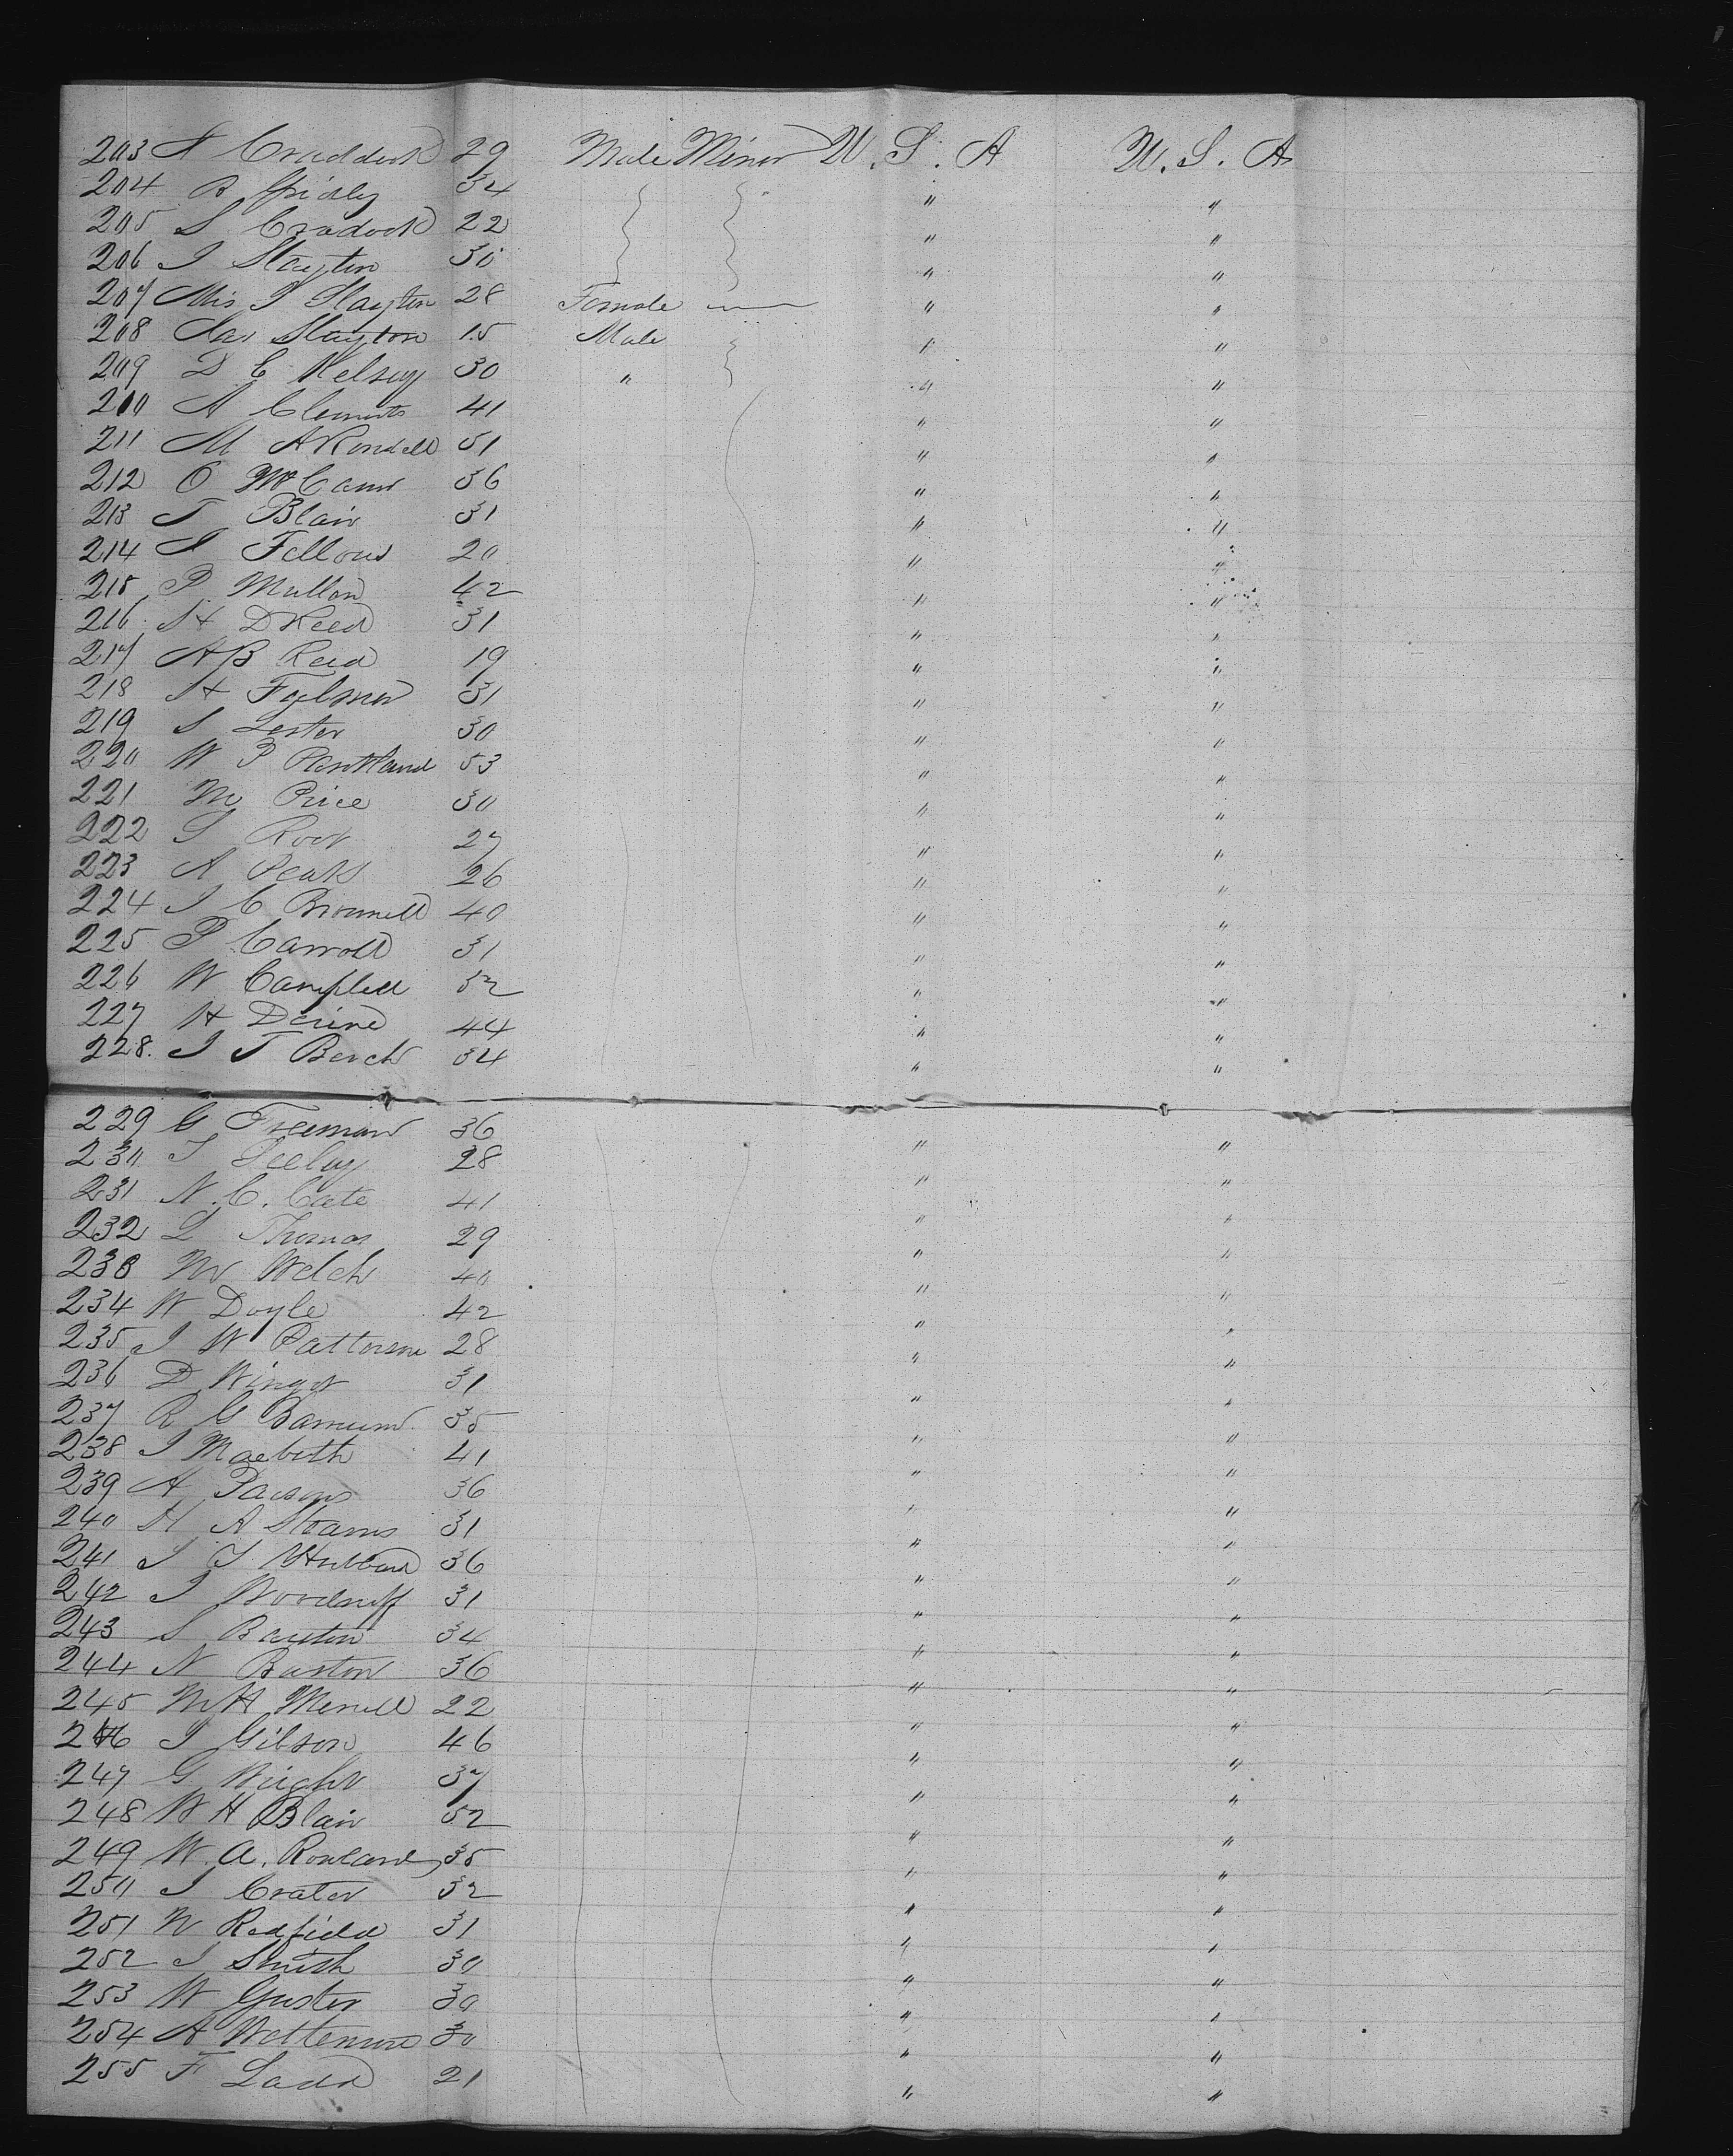 203 A Craddock 29 Male Miner U. S. A U. S. A
204 B Gridley 34 " "
205 S Cradock 22 " "
206 J Slayton 30 " "
207 Mrs J Slayton 28 Female — " "
208 Slayton 15 Male " "
209 D C Kelsey 30 " " "
210 A Clements 41 " "
211 M A Rondell 51 " "
212 O McCann 36 " "
213 T Blair 31 " "
214 J Fellows 20 " "
215 P Mullon 42 " "
216 H D Reed 31 " "
217 A B Reed 19 " "
218 H 31 " "
219 S Lester 30 " "
220 W P Pentland 53 " "
221 M Price 30 " "
222 S Root 27 " "
223 A Peak 26 " "
224 J C Brownell 40 " "
225 P Carroll 31 " "
226 W Campbell 32 " "
227 H Devine 44 " "
228. J T Berch 34 " "
229 G Freeman 36 " "
230 J Seeley 28 " "
231 N. C. Cate 41 " "
232 L Thomas 29 " "
233 M Welch 40 " "
234 W Doyle 42 " "
235 J W Patterson 28 " "
236 D 31 " "
237 R G Barnum 35 " "
238 J Macbeth 41 " "
239 A Parsons 36 " "
240 H A Stearns 31 " "
241 S J Hubbard 36 " "
242 J Woodruff 31 " "
243 S Barton 34 " "
244 N Barton 36 " "
245 M H Merrill 22 " "
246 J Gibson 46 " "
247 G Wright 37 " "
248 W H Blair 52 " "
249 W. A. Rowland 35 " "
250 J Crater 32 " "
251 W Redfield 31 " "
252 J Smith 30 " "
253 W Guster 30 " "
254 A 30 " "
255 F Ladd 21 " "